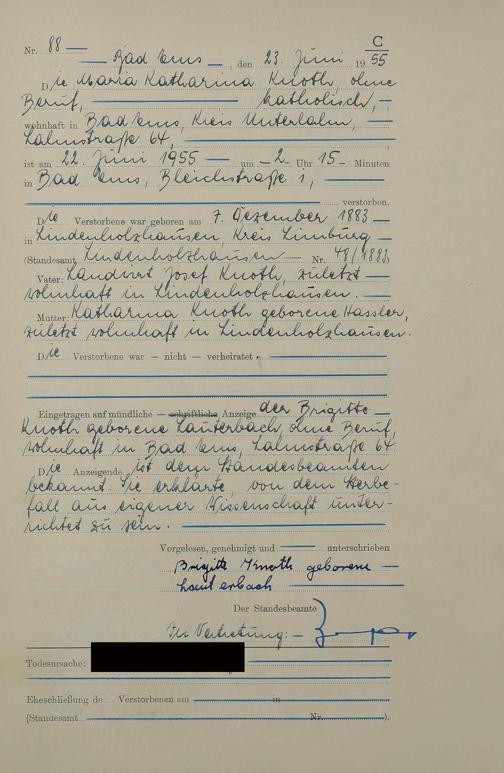 C
Nr. 88
Bad Ems, den 23. Juni 1955
Die Maria Katharina Knoth, ohne
Beruf, katholisch,
wohnhaft in Bad Ems, Kreis Unterlahn,
Lahnstraße 64,
ist am 22. Juni 1955 um 2 Uhr 15 Minuten
in Bad Ems, Bleichstraße 1,
verstorben.
Die Verstorbene war geboren am 7. Dezember 1883
in Lindenholzhausen, Kreis Limburg
(Standesamt Lindenholzhausen Nr. 48/1883)
Vater: Landwirt Josef Knoth, zuletzt
wohnhaft in Lindenholzhausen.
Mutter: Katharina Knoth geborene Hassler,
zuletzt wohnhaft in Lindenholzhausen.
Die Verstorbene war — nicht — verheiratet.
Eingetragen auf mündliche — schriftliche Anzeige der Brigitte
Knoth geborene Lauterbach, ohne Beruf,
wohnhaft in Bad Ems, Lahnstraße 64.
Die Anzeigende ist dem Standesbeamten
bekannt. Sie erklärte, von dem Sterbe-
fall aus eigener Wissenschaft unter-
richtet zu sein.
Vorgelesen, genehmigt und unterschrieben
Brigitte Knoth geborene
Lauterbach
Der Standesbeamte
In Vertretung:
Todesursache:
Eheschließung de Verstorbenen am in
(Standesamt Nr. ).